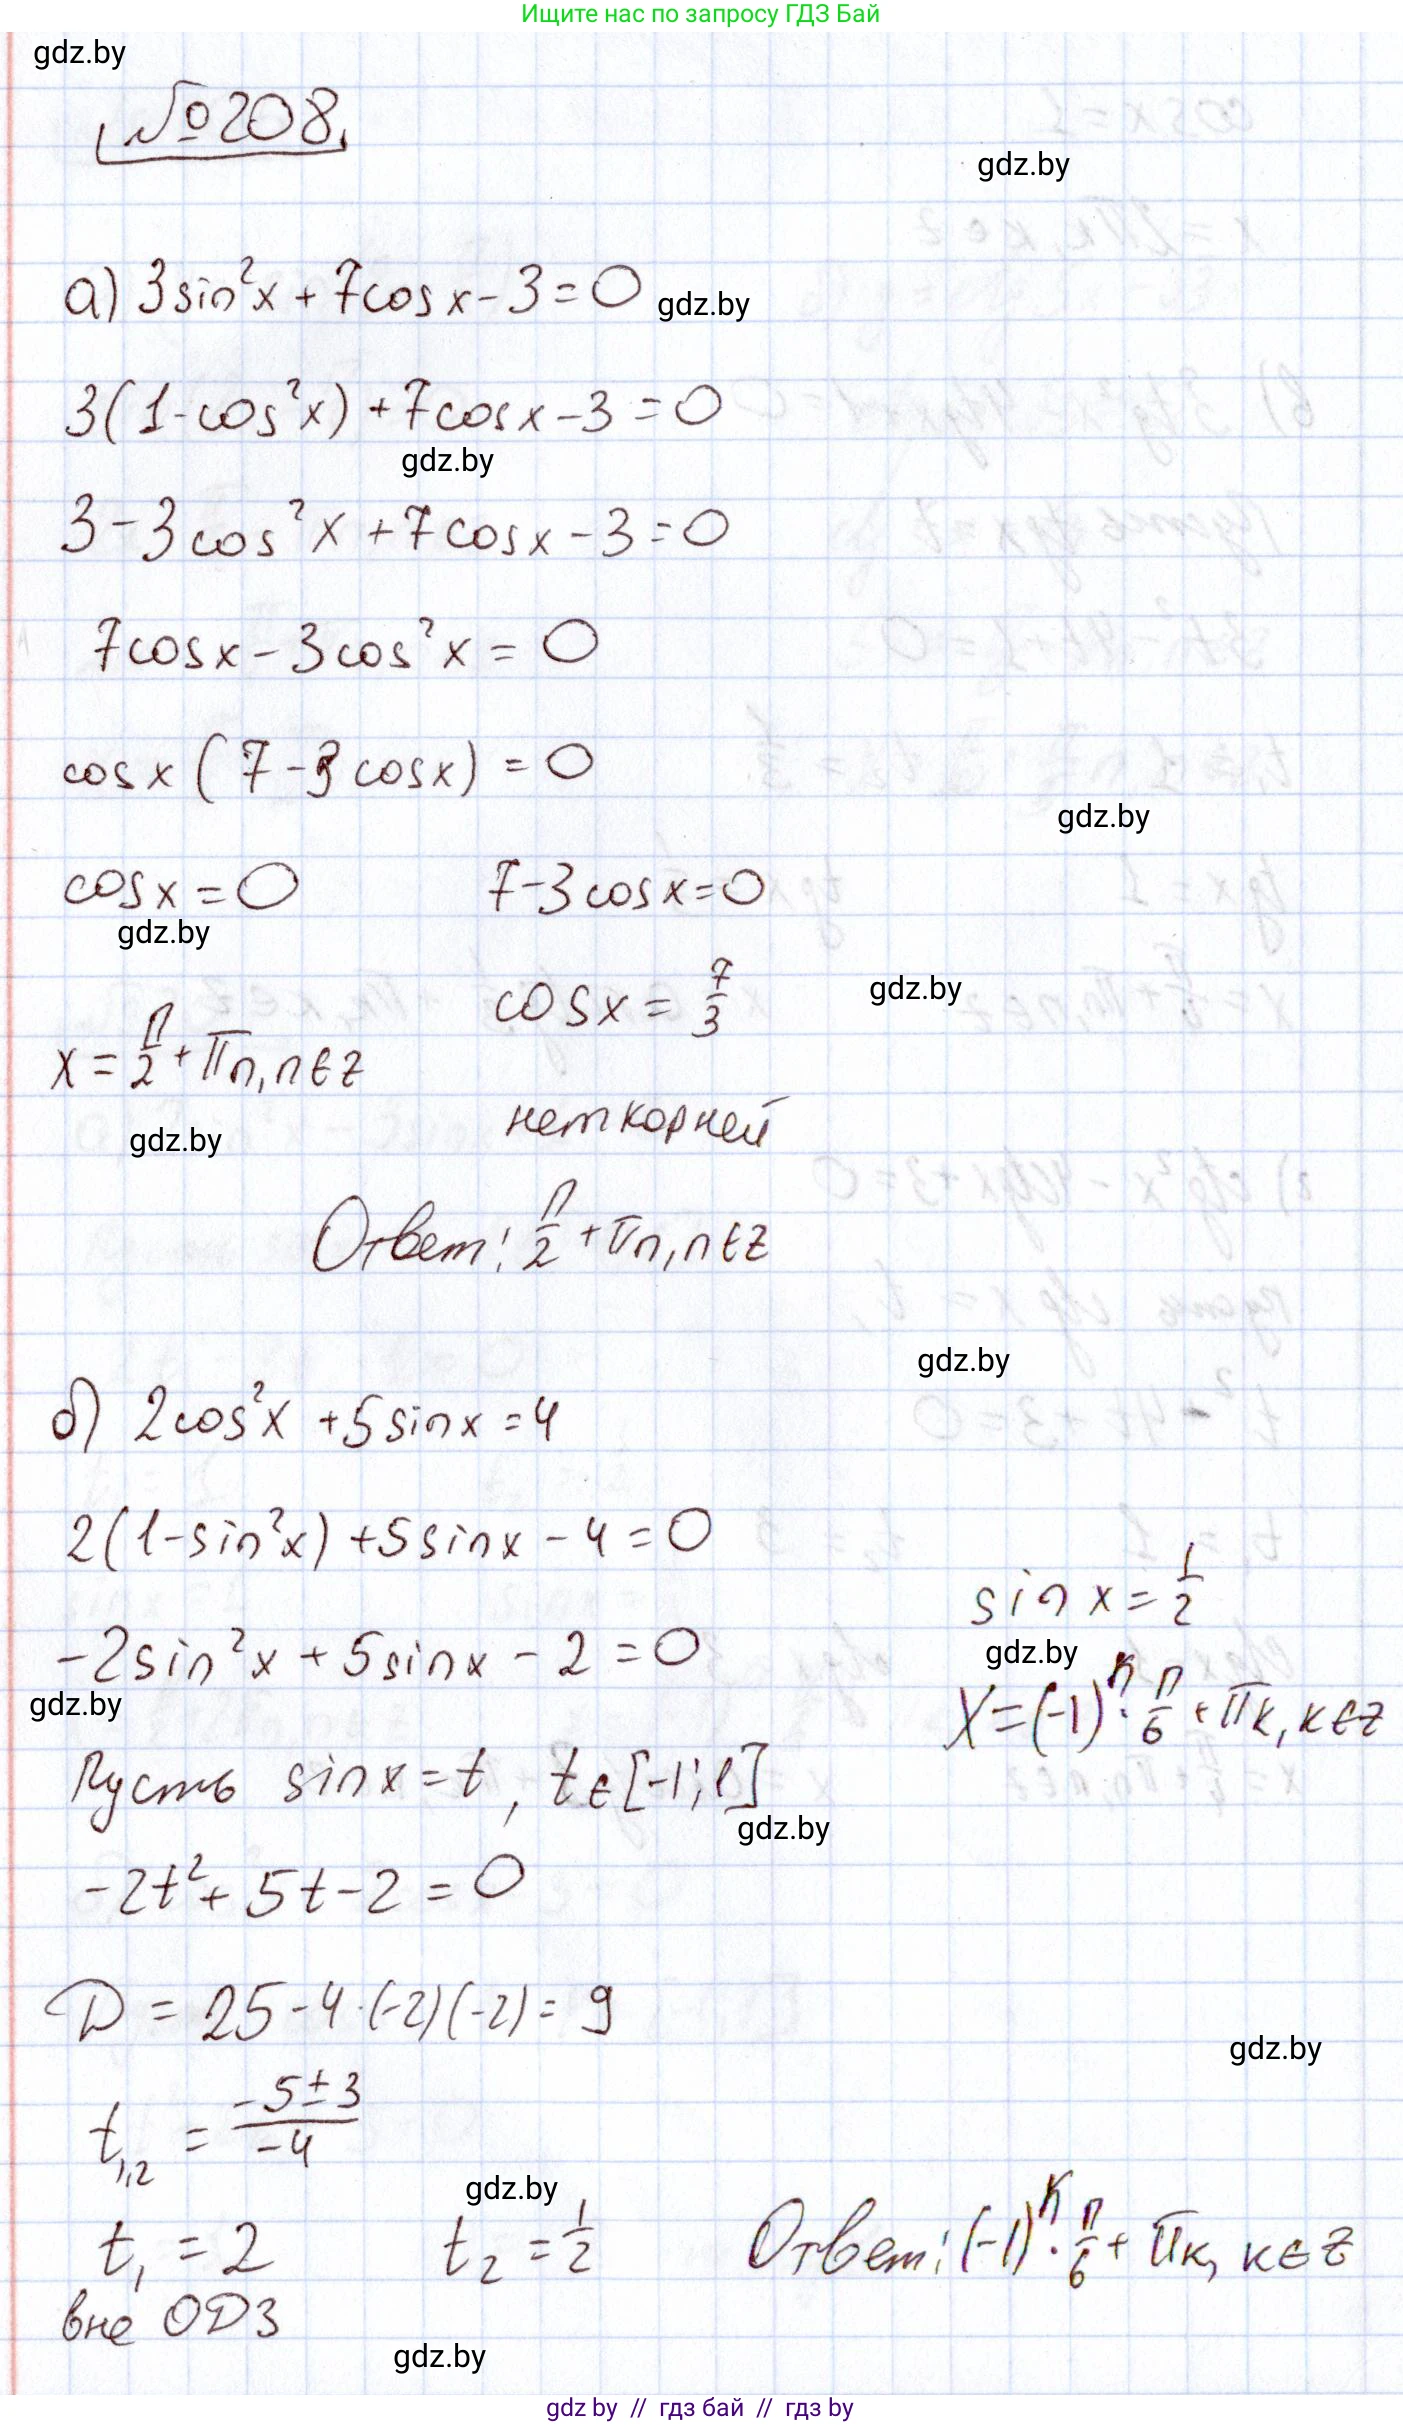 Ищите нас по запросу ГДЗ Бай
gdz.by
№208.
gdz.by
а) 3sin²x + 7cosx - 3 = 0
gdz.by
3(1-cos²x) + 7cosx - 3 = 0
gdz.by
3 - 3cos²x + 7cosx - 3 = 0
7cosx - 3cos²x = 0
cosx (7 - 3cosx) = 0
gdz.by
cosx = 0 7-3cosx=0
gdz.by
cosx = 7/3
gdz.by
x = π/2 + πn, n∈z
нет корней
gdz.by
Ответ: π/2 + πn, n∈z
gdz.by
б) 2cos²x + 5sinx = 4
2(1-sin²x) + 5sinx - 4 = 0
sinx = 1/2
gdz.by
-2sin²x + 5sinx - 2 = 0
gdz.by
x = (-1)ᵏ · π/6 + πk, k∈z
Пусть sinx = t, t∈[-1;1]
gdz.by
-2t² + 5t - 2 = 0
D = 25 - 4·(-2)(-2) = 9
gdz.by
t₁,₂ = (-5±3)/-4
gdz.by
t₁ = 2 t₂ = 1/2 Ответ: (-1)ᵏ · π/6 + πk, k∈z
вне ОДЗ
gdz.by
gdz.by // гдз бай // гдз by